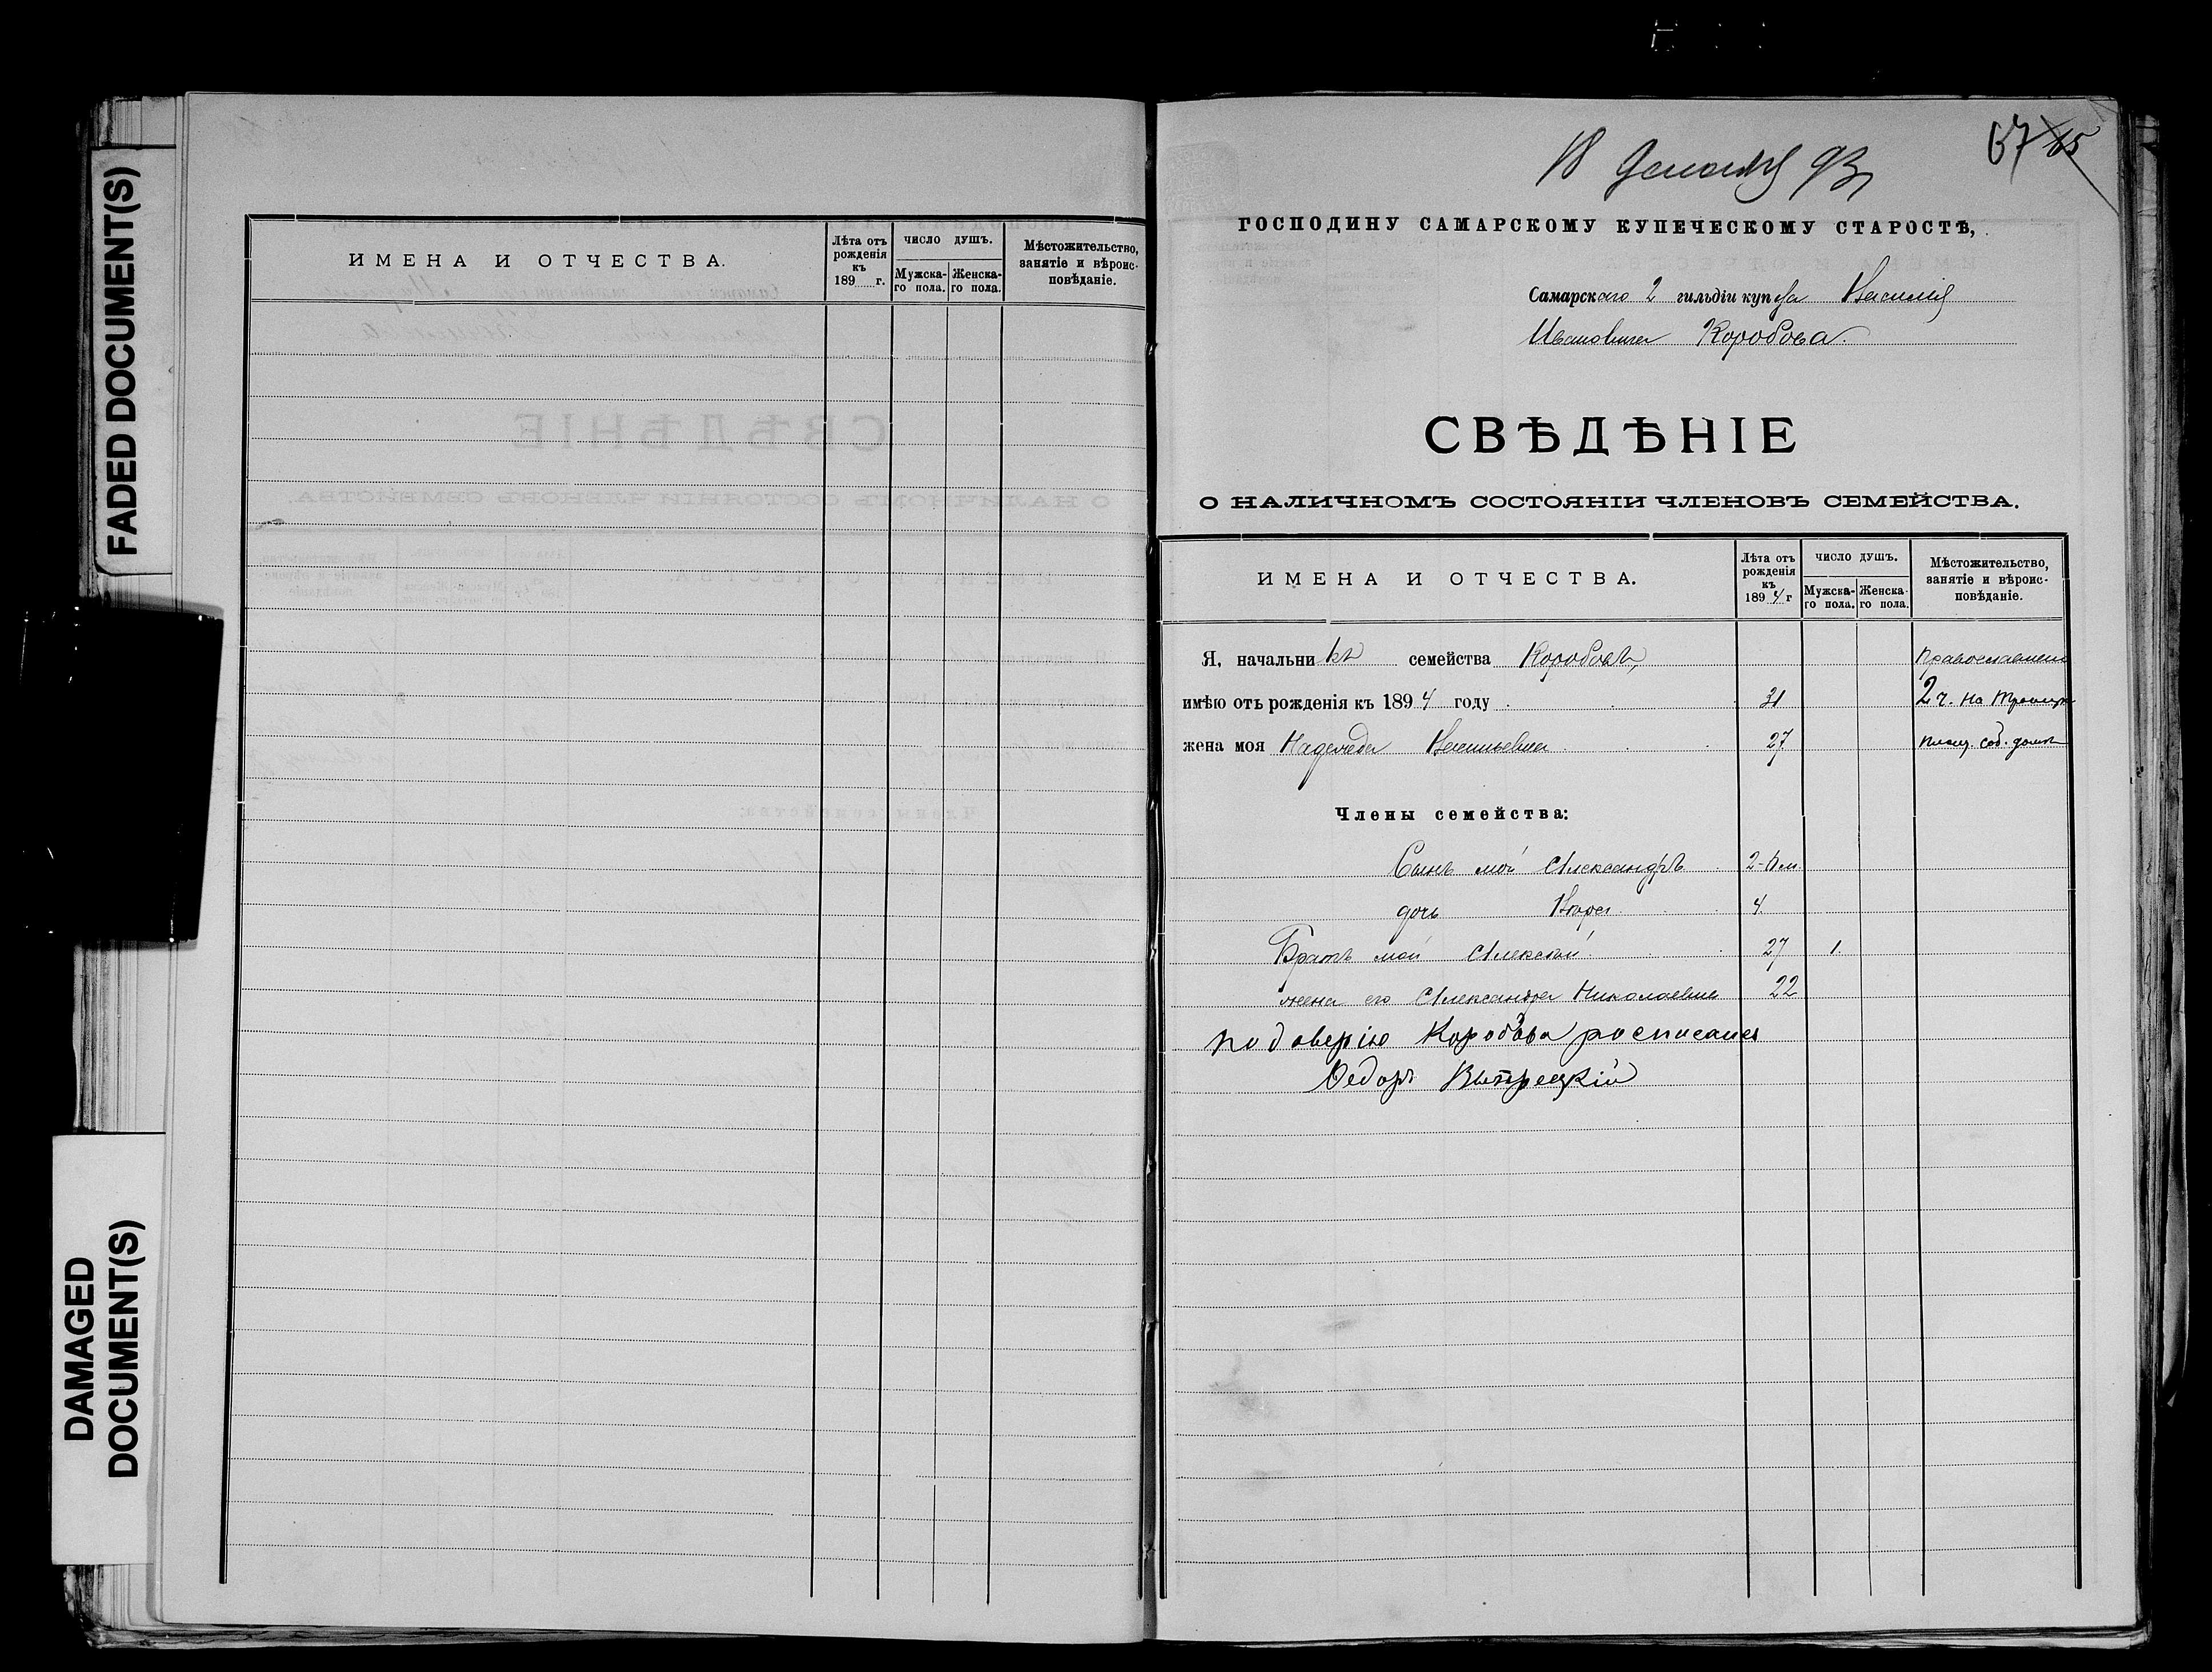 FADED DOCUMENT(S)
DAMAGED
DOCUMENT(S)
ИМЕНА И ОТЧЕСТВА.
Лѣта отъ рожденія къ 189 г.
число душъ.
Мужска-го пола.
Женска-го пола.
Мѣстожительство, занятіе и вѣроис-повѣданіе.
67 65
18 Декабря 93
ГОСПОДИНУ САМАРСКОМУ КУПЕЧЕСКОМУ СТАРОСТѢ,
Самарскаго 2 гильдіи купца Василія
Ивановича Коробова.
СВѢДѢНІЕ
О НАЛИЧНОМЪ СОСТОЯНІИ ЧЛЕНОВЪ СЕМЕЙСТВА.
ИМЕНА И ОТЧЕСТВА.
Лѣта отъ рожденія къ 1894 г
число душъ.
Мужска-го пола.
Женска-го пола.
Мѣстожительство, занятіе и вѣроис-повѣданіе.
Я, начальникъ семейства Коробовъ, Православнаго
имѣю отъ рожденія къ 1894 году 31 2 ч. на Троицк
жена моя Надежда Васильевна 27 площ. соб. домъ
Члены семейства:
Сынъ мой Александръ 2
дочь 4
Братъ мой Алексѣй 27 1.
жена его Александра Николаевна 22
По доверію Коробова росписался
Федоръ